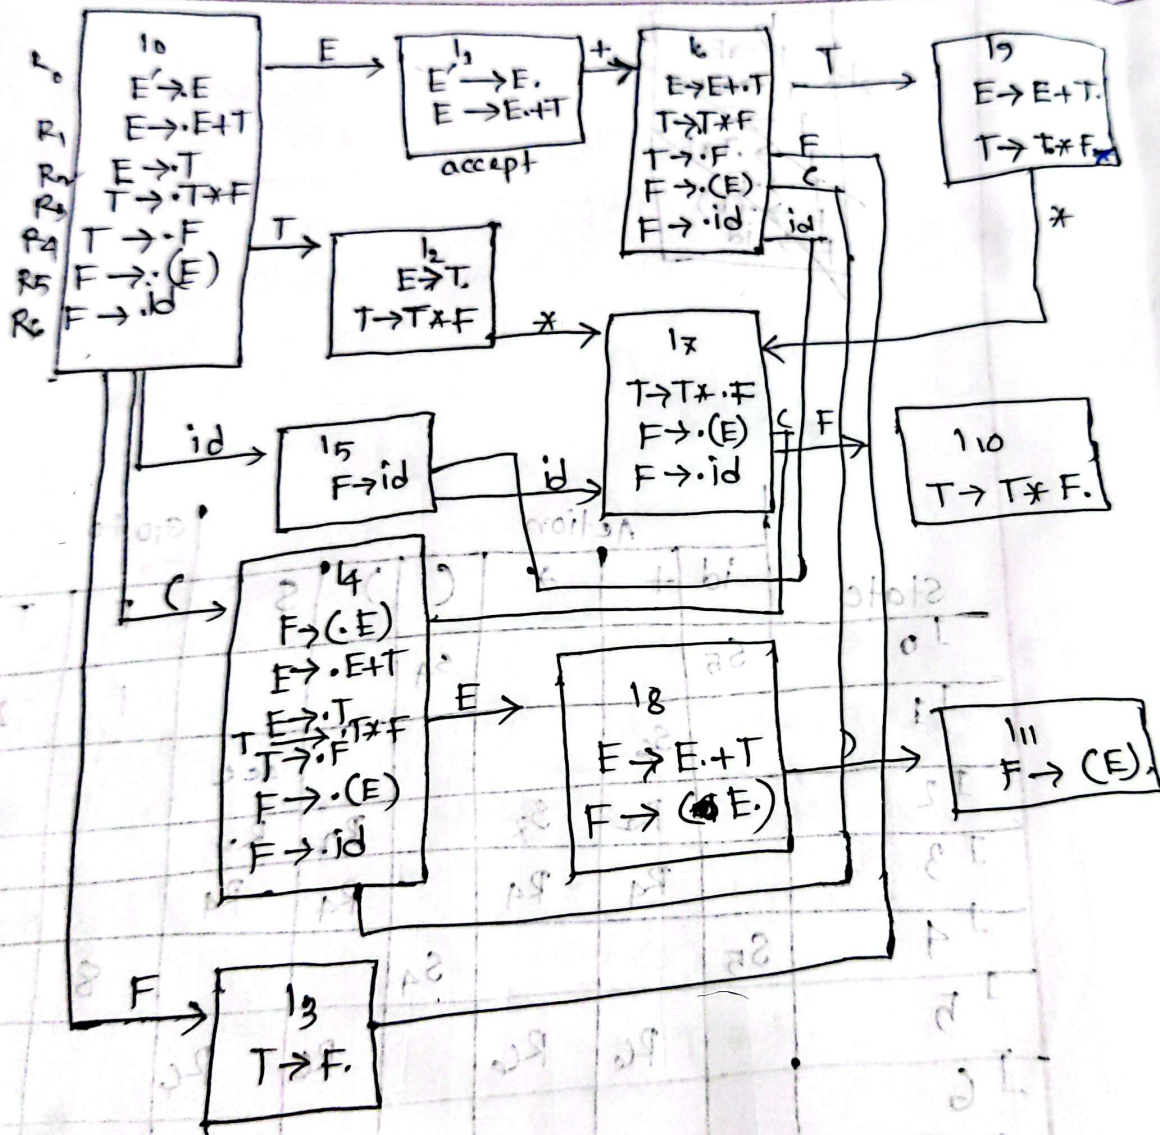 I0
R0 E'→.E
R1 E→.E+T
R2 E→.T
R3 T→.T*F
R4 T→.F
R5 F→.(E)
R6 F→.id
E
I1
E'→E.
E→E.+T
accept
+
I6
E→E+.T
T→T*F
T→.F
F→.(E)
F→.id
T
F
(
id
I9
E→E+T.
T→T.*F.
*
T
I2
E→T.
T→T*.F
*
I7
T→T*.F
F→.(E)
F→.id
(
F
I10
T→T*F.
id
I5
F→id
id
(
I4
F→(.E)
E→.E+T
E→.T
T→.T*F
T→.F
F→.(E)
F→.id
E
I8
E→E.+T
F→(E.)
)
I11
F→(E).
F
I3
T→F.